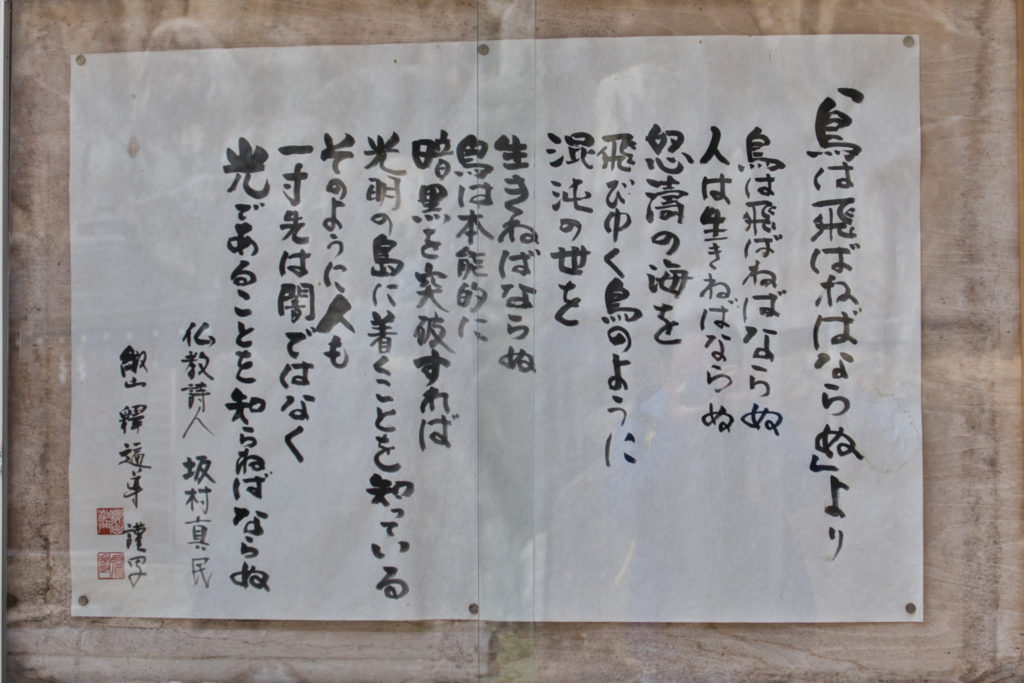 「鳥は飛ばねばならぬ」より
鳥は飛ばねばならぬ
人は生きねばならぬ
怒濤の海を
飛びゆく鳥のように
混沌の世を
生きねばならぬ
鳥は本能的に
暗黒を突破すれば
光明の島に着くことを知っている
そのように人も
一寸先は闇ではなく
光であることを知らねばならぬ
仏教詩人 坂村真民
釋